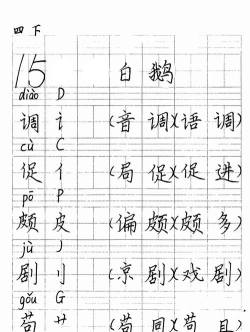 四 下
15 白 鹅
diào D
调 讠 (音 调)(语 调)
cù C
促 亻 (局 促)(促 进)
pō P
颇 皮 (偏 颇)(颇 多)
jù J
剧 刂 (京 剧)(戏 剧)
gǒu G
苟 艹 (苟 同)(苟 且)